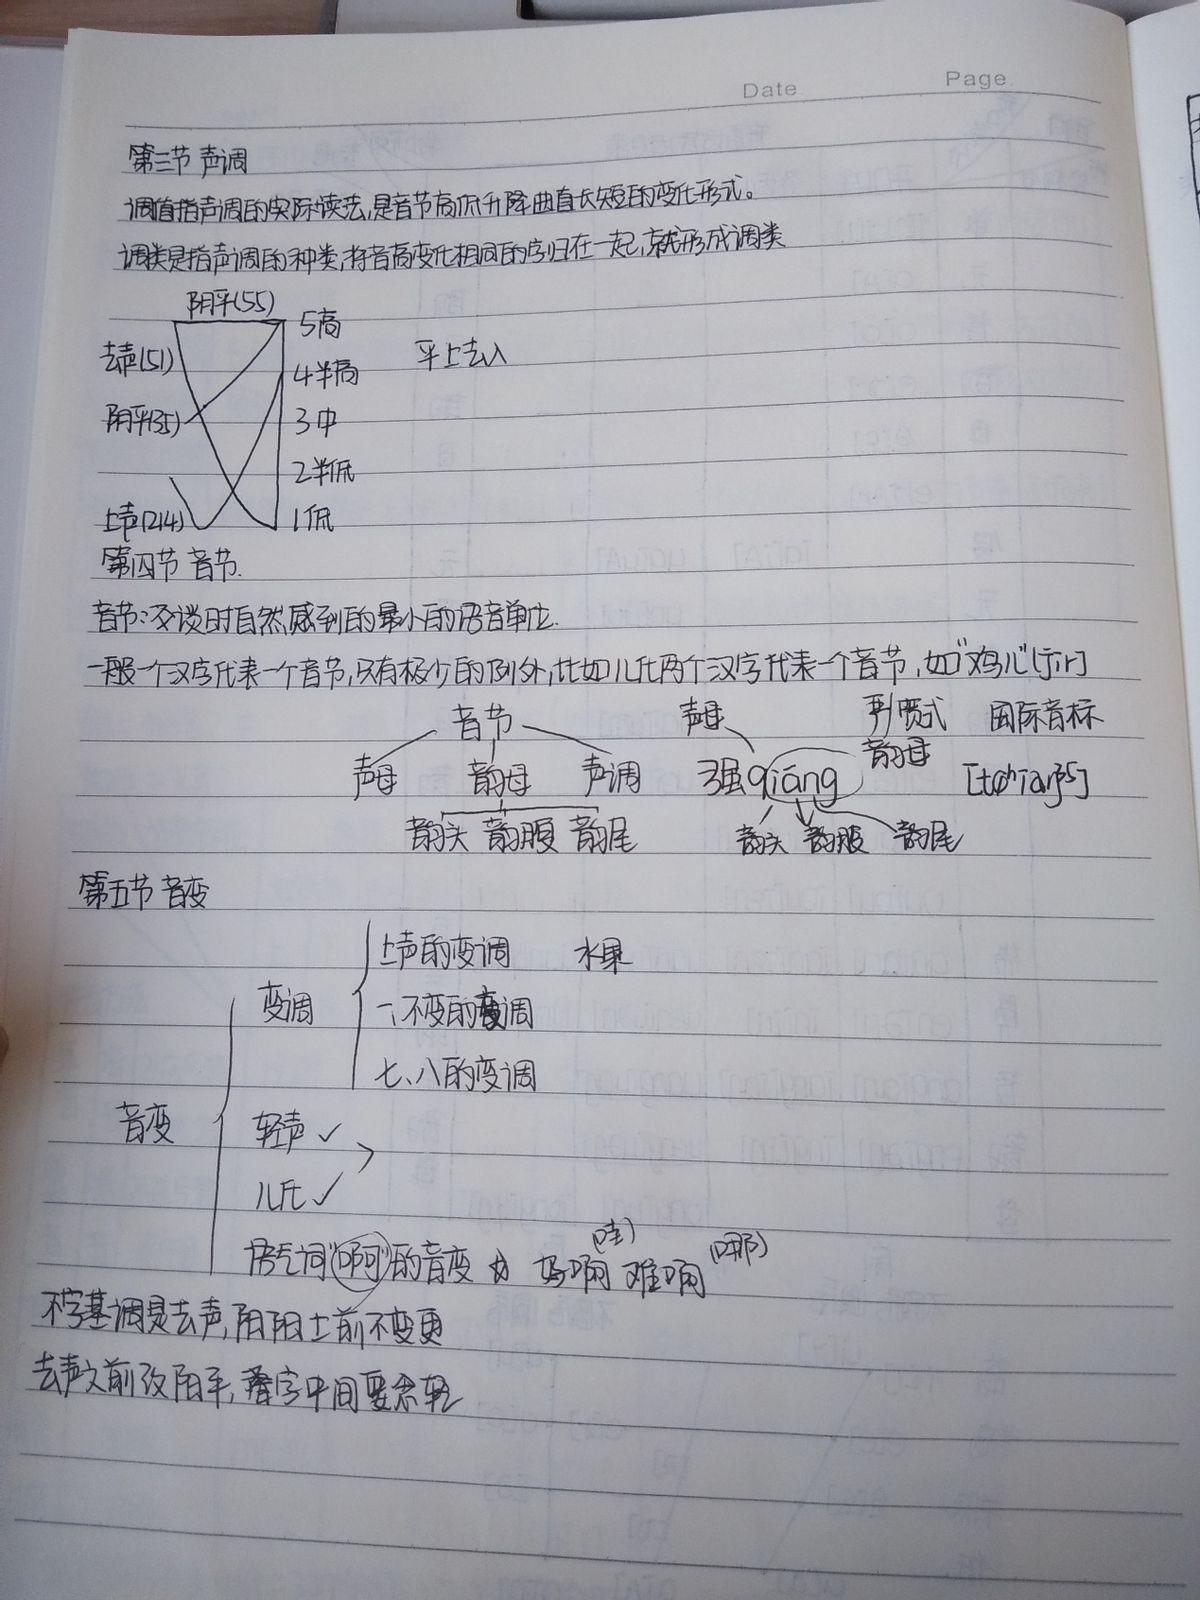 Date Page
第三节 声调
调值指声调的实际读法,是音节高低升降曲直长短的变化形式。
调类是指声调的种类,将音高变化相同的字归在一起,就形成调类
阴平(55)
5高
去声(51)
4半高
平上去入
阳平(35)
3中
2半低
上声(214)
1低
第四节 音节
音节:交谈时自然感到的最小的语音单位.
一般一个汉字代表一个音节,只有极少的例外,比如儿化两个汉字代表一个音节,如"鸡儿"
音节 声母 国际音标
声母 韵母 声调 强qiáng 韵母
韵头 韵腹 韵尾 韵头 韵腹 韵尾
第五节 音变
上声的变调 水果
变调
一、不变的变调
七、八的变调
音变
轻声 ✓
儿化 ✓
(哇) (哪)
语气词"啊"的音变 好啊 难啊
不字基调是去声,阴阳上前不变更
去声之前改阳平,叠字中间要念轻